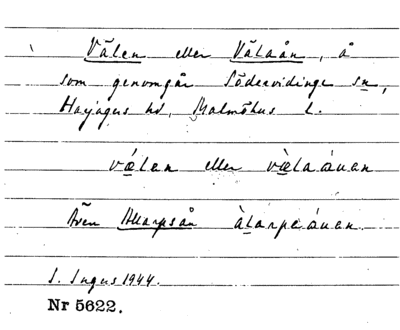 Välen eller Välaån, å
som genomgår Södervidinge sn,
Harjagers hd, Malmöhus l.
vǽlen eller væ̀laáuan
Även Allarpsån àlarpeáuan
S. Ingers 1944.
Nr 5622.